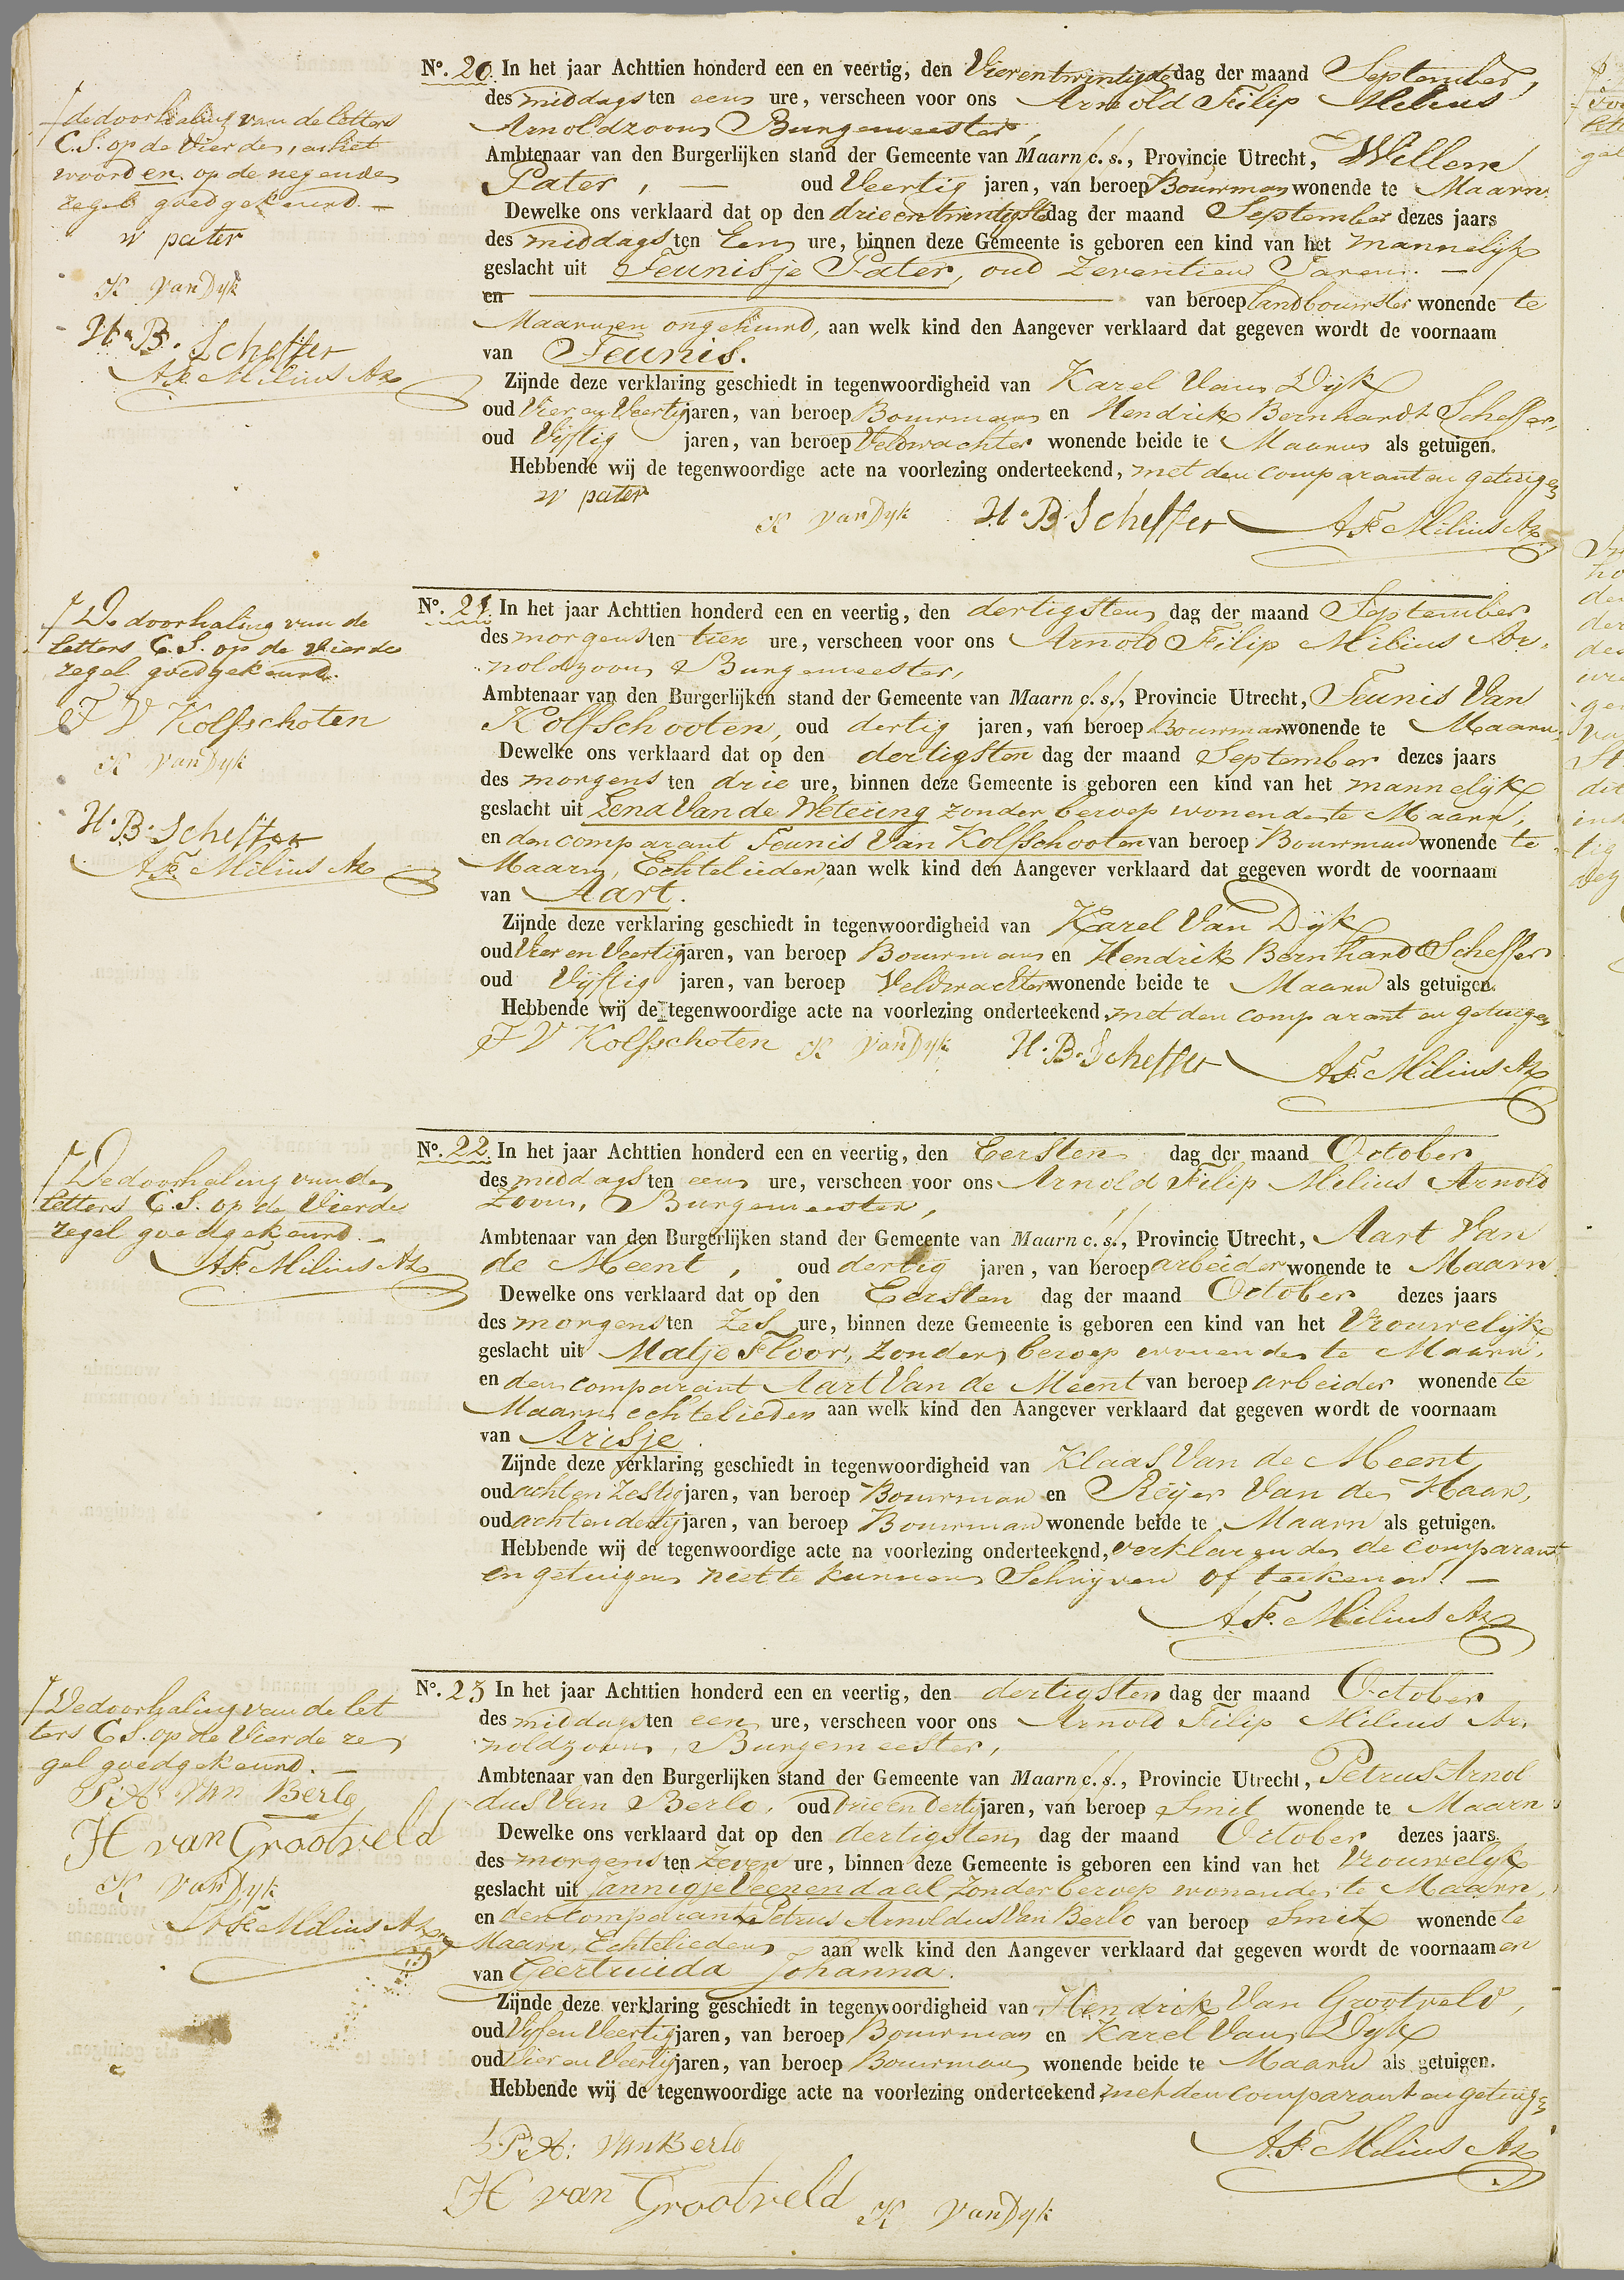 de doorhaling van de letters
C.S. op de Vierde, en het
woord en op de negende
regel goedgekeurd. —
w pater
K van Dyk
H. B. Scheffer
A.F. Milius Az
No. 20. In het jaar Achttien honderd een en veertig, den Vierentwintigste dag der maand September,
des middags ten een ure, verscheen voor ons Arnold Filip Milius
Arnoldzoon, Burgemeester,
Ambtenaar van den Burgerlijken stand der Gemeente van Maarn c. s., Provincie Utrecht, Willem
Pater, — oud Veertig jaren, van beroep Bouwman wonende te Maarn.
Dewelke ons verklaard dat op den drieentwintigste dag der maand September dezes jaars
des middags ten Een ure, binnen deze Gemeente is geboren een kind van het mannelijk
geslacht uit Teunisje Pater, oud Zeventien Jaren. —
en — van beroep landbouwster wonende te
Maarn en ongehuwd, aan welk kind den Aangever verklaard dat gegeven wordt de voornaam
van Teunis.
Zijnde deze verklaring geschiedt in tegenwoordigheid van Karel Van Dijk
oud Vier en Veertig jaren, van beroep Bouwman en Hendrik Bernhardt Scheffer,
oud Vijftig jaren, van beroep Veldwachter wonende beide te Maarn als getuigen.
Hebbende wij de tegenwoordige acte na voorlezing onderteekend, met den comparant en getuigen
w pater
K van Dyk H. B. Scheffer A.F. Milius Az
De doorhaling van de
letters C.S. op de Vierde
regel goedgekeurd.
T V Kolfschoten
K van Dyk
H. B. Scheffer
A.F. Milius Az
No. 21. In het jaar Achttien honderd een en veertig, den dertigsten dag der maand September
des morgens ten tien ure, verscheen voor ons Arnold Filip Milius Ar-
noldzoon, Burgemeester,
Ambtenaar van den Burgerlijken stand der Gemeente van Maarn c. s., Provincie Utrecht, Teunis Van
Kolfschooten, oud dertig jaren, van beroep Bouwman wonende te Maarn.
Dewelke ons verklaard dat op den dertigsten dag der maand September dezes jaars
des morgens ten drie ure, binnen deze Gemeente is geboren een kind van het mannelijk
geslacht uit Lena Van de Wetering zonder beroep wonende te Maarn,
en den comparant Teunis Van Kolfschooten van beroep Bouwman wonende te
Maarn, Echtelieden, aan welk kind den Aangever verklaard dat gegeven wordt de voornaam
van Aart.
Zijnde deze verklaring geschiedt in tegenwoordigheid van Karel Van Dijk
oud Vier en Veertig jaren, van beroep Bouwman en Hendrik Bernhardt Scheffer
oud Vijftig jaren, van beroep Veldwachter wonende beide te Maarn als getuigen.
Hebbende wij de tegenwoordige acte na voorlezing onderteekend, met den comparant en getuigen
T V Kolfschoten K van Dyk H. B. Scheffer A.F. Milius Az
De doorhaling van de
letters C.S. op de Vierde
regel goedgekeurd. —
A.F. Milius Az
No. 22. In het jaar Achttien honderd een en veertig, den Eersten dag der maand October
des middags ten een ure, verscheen voor ons Arnold Filip Milius Arnold
Zoon, Burgemeester,
Ambtenaar van den Burgerlijken stand der Gemeente van Maarn c. s., Provincie Utrecht, Aart Van
de Meent, oud dertig jaren, van beroep arbeider wonende te Maarn.
Dewelke ons verklaard dat op den Eersten dag der maand October dezes jaars
des morgens ten Zes ure, binnen deze Gemeente is geboren een kind van het Vrouwelijk
geslacht uit Matje Floor, Zonder beroep wonende te Maarn,
en den comparant Aart Van de Meent van beroep arbeider wonende te
Maarn echtelieden aan welk kind den Aangever verklaard dat gegeven wordt de voornaam
van Arisje.
Zijnde deze verklaring geschiedt in tegenwoordigheid van Klaas Van de Meent
oud achtenzestig jaren, van beroep Bouwman en Reijer Van de Haar,
oud achtendertig jaren, van beroep Bouwman wonende beide te Maarn als getuigen.
Hebbende wij de tegenwoordige acte na voorlezing onderteekend, verklarende de comparant
en getuigen niet te kunnen Schrijven of teekenen. —
A.F. Milius Az
De doorhaling van de let
ters C.S. op de Vierde re
gel goedgekeurd. —
P. A. Van Berlo
H van Grootveld
K van Dyk
A.F. Milius Az
No. 23 In het jaar Achttien honderd een en veertig, den dertigsten dag der maand October
des middags ten een ure, verscheen voor ons Arnold Filip Milius Ar-
noldzoon, Burgemeester,
Ambtenaar van den Burgerlijken stand der Gemeente van Maarn c. s., Provincie Utrecht, Petrus Arnol
dus Van Berlo, oud Drieendertig jaren, van beroep Smit wonende te Maarn.
Dewelke ons verklaard dat op den dertigsten dag der maand October dezes jaars
des morgens ten Zeven ure, binnen deze Gemeente is geboren een kind van het Vrouwelijk
geslacht uit Jannigje Veenendaal Zonder beroep wonende te Maarn,
en den Comparant Petrus Arnoldus Van Berlo van beroep Smit wonende te
Maarn, Echtelieden, aan welk kind den Aangever verklaard dat gegeven wordt de voornaamen
van Geertruida Johanna.
Zijnde deze verklaring geschiedt in tegenwoordigheid van Hendrik Van Grootveld,
oud Vijfen Veertig jaren, van beroep Bouwman en Karel Van Dijk
oud Vier en Veertig jaren, van beroep Bouwman wonende beide te Maarn als getuigen.
Hebbende wij de tegenwoordige acte na voorlezing onderteekend, met den comparant en getuigen
P. A: Van Berlo A.F. Milius Az
H van Grootveld K van Dyk